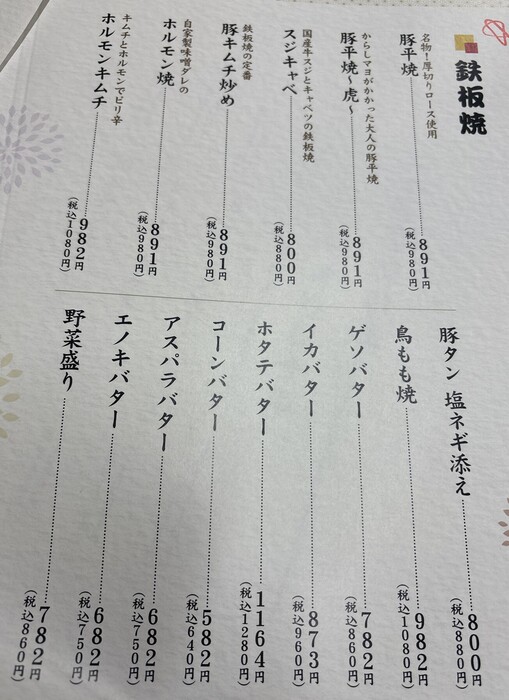 鉄板焼
名物!厚切りロース使用
豚平焼 891円
(税込980円)
からしマヨがかかった大人の豚平焼
豚平焼〜虎〜 891円
(税込980円)
国産牛スジとキャベツの鉄板焼
スジキャベ 800円
(税込880円)
鉄板焼の定番
豚キムチ炒め 891円
(税込980円)
自家製味噌ダレの
ホルモン焼 891円
(税込980円)
キムチとホルモンでピリ辛
ホルモンキムチ 982円
(税込1080円)
豚タン 塩ネギ添え 800円
(税込880円)
鳥もも焼 982円
(税込1080円)
ゲソバター 782円
(税込860円)
イカバター 873円
(税込960円)
ホタテバター 1164円
(税込1280円)
コーンバター 582円
(税込640円)
アスパラバター 682円
(税込750円)
エノキバター 682円
(税込750円)
野菜盛り 782円
(税込860円)